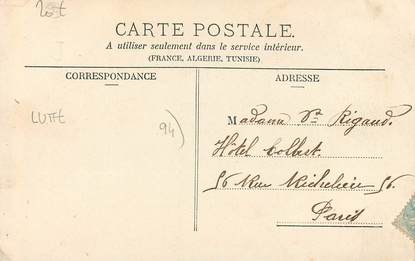 20€
CARTE POSTALE.
A utiliser seulement dans le service intérieur.
(FRANCE, ALGERIE, TUNISIE)
CORRESPONDANCE
ADRESSE
LUTTE
94
Madame Vve Rigaud.
Hôtel Colbert.
56 Rue Richelieu 56.
Paris